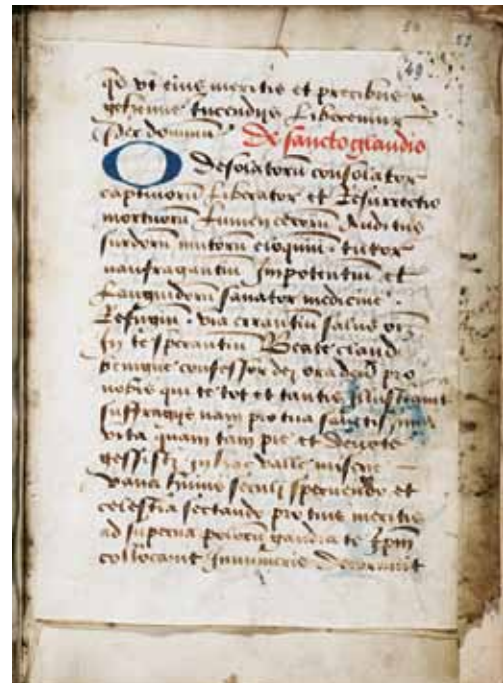 50 53
49
qs ut eius meritis et precibus a
gehenne incendiis liberemur
per dominū De sancto glaudio
O desolatorū consolator
captivorū liberator et Resurrectio
mortuorū lumen cecorū Auditus
surdorū mutorū eloquiū . tutor
naufragantiū Impotentiū et
languidorū sanator medicine .
Refugiū . via errantiū salus oīm
In te sperantiū Beate claudi
benigne confessor dei ora deū pro
nobis qui te tot et tantis Illustravit
suffragiis nam pro tua sanctissima
vita quam tam pie et devote
gessisti in hac valle miserie
seculi spernendo et
celestia sectando pro tuis meritis
ad superna polorū gaudia te xp̄m
collocavit Innumeris decoravit